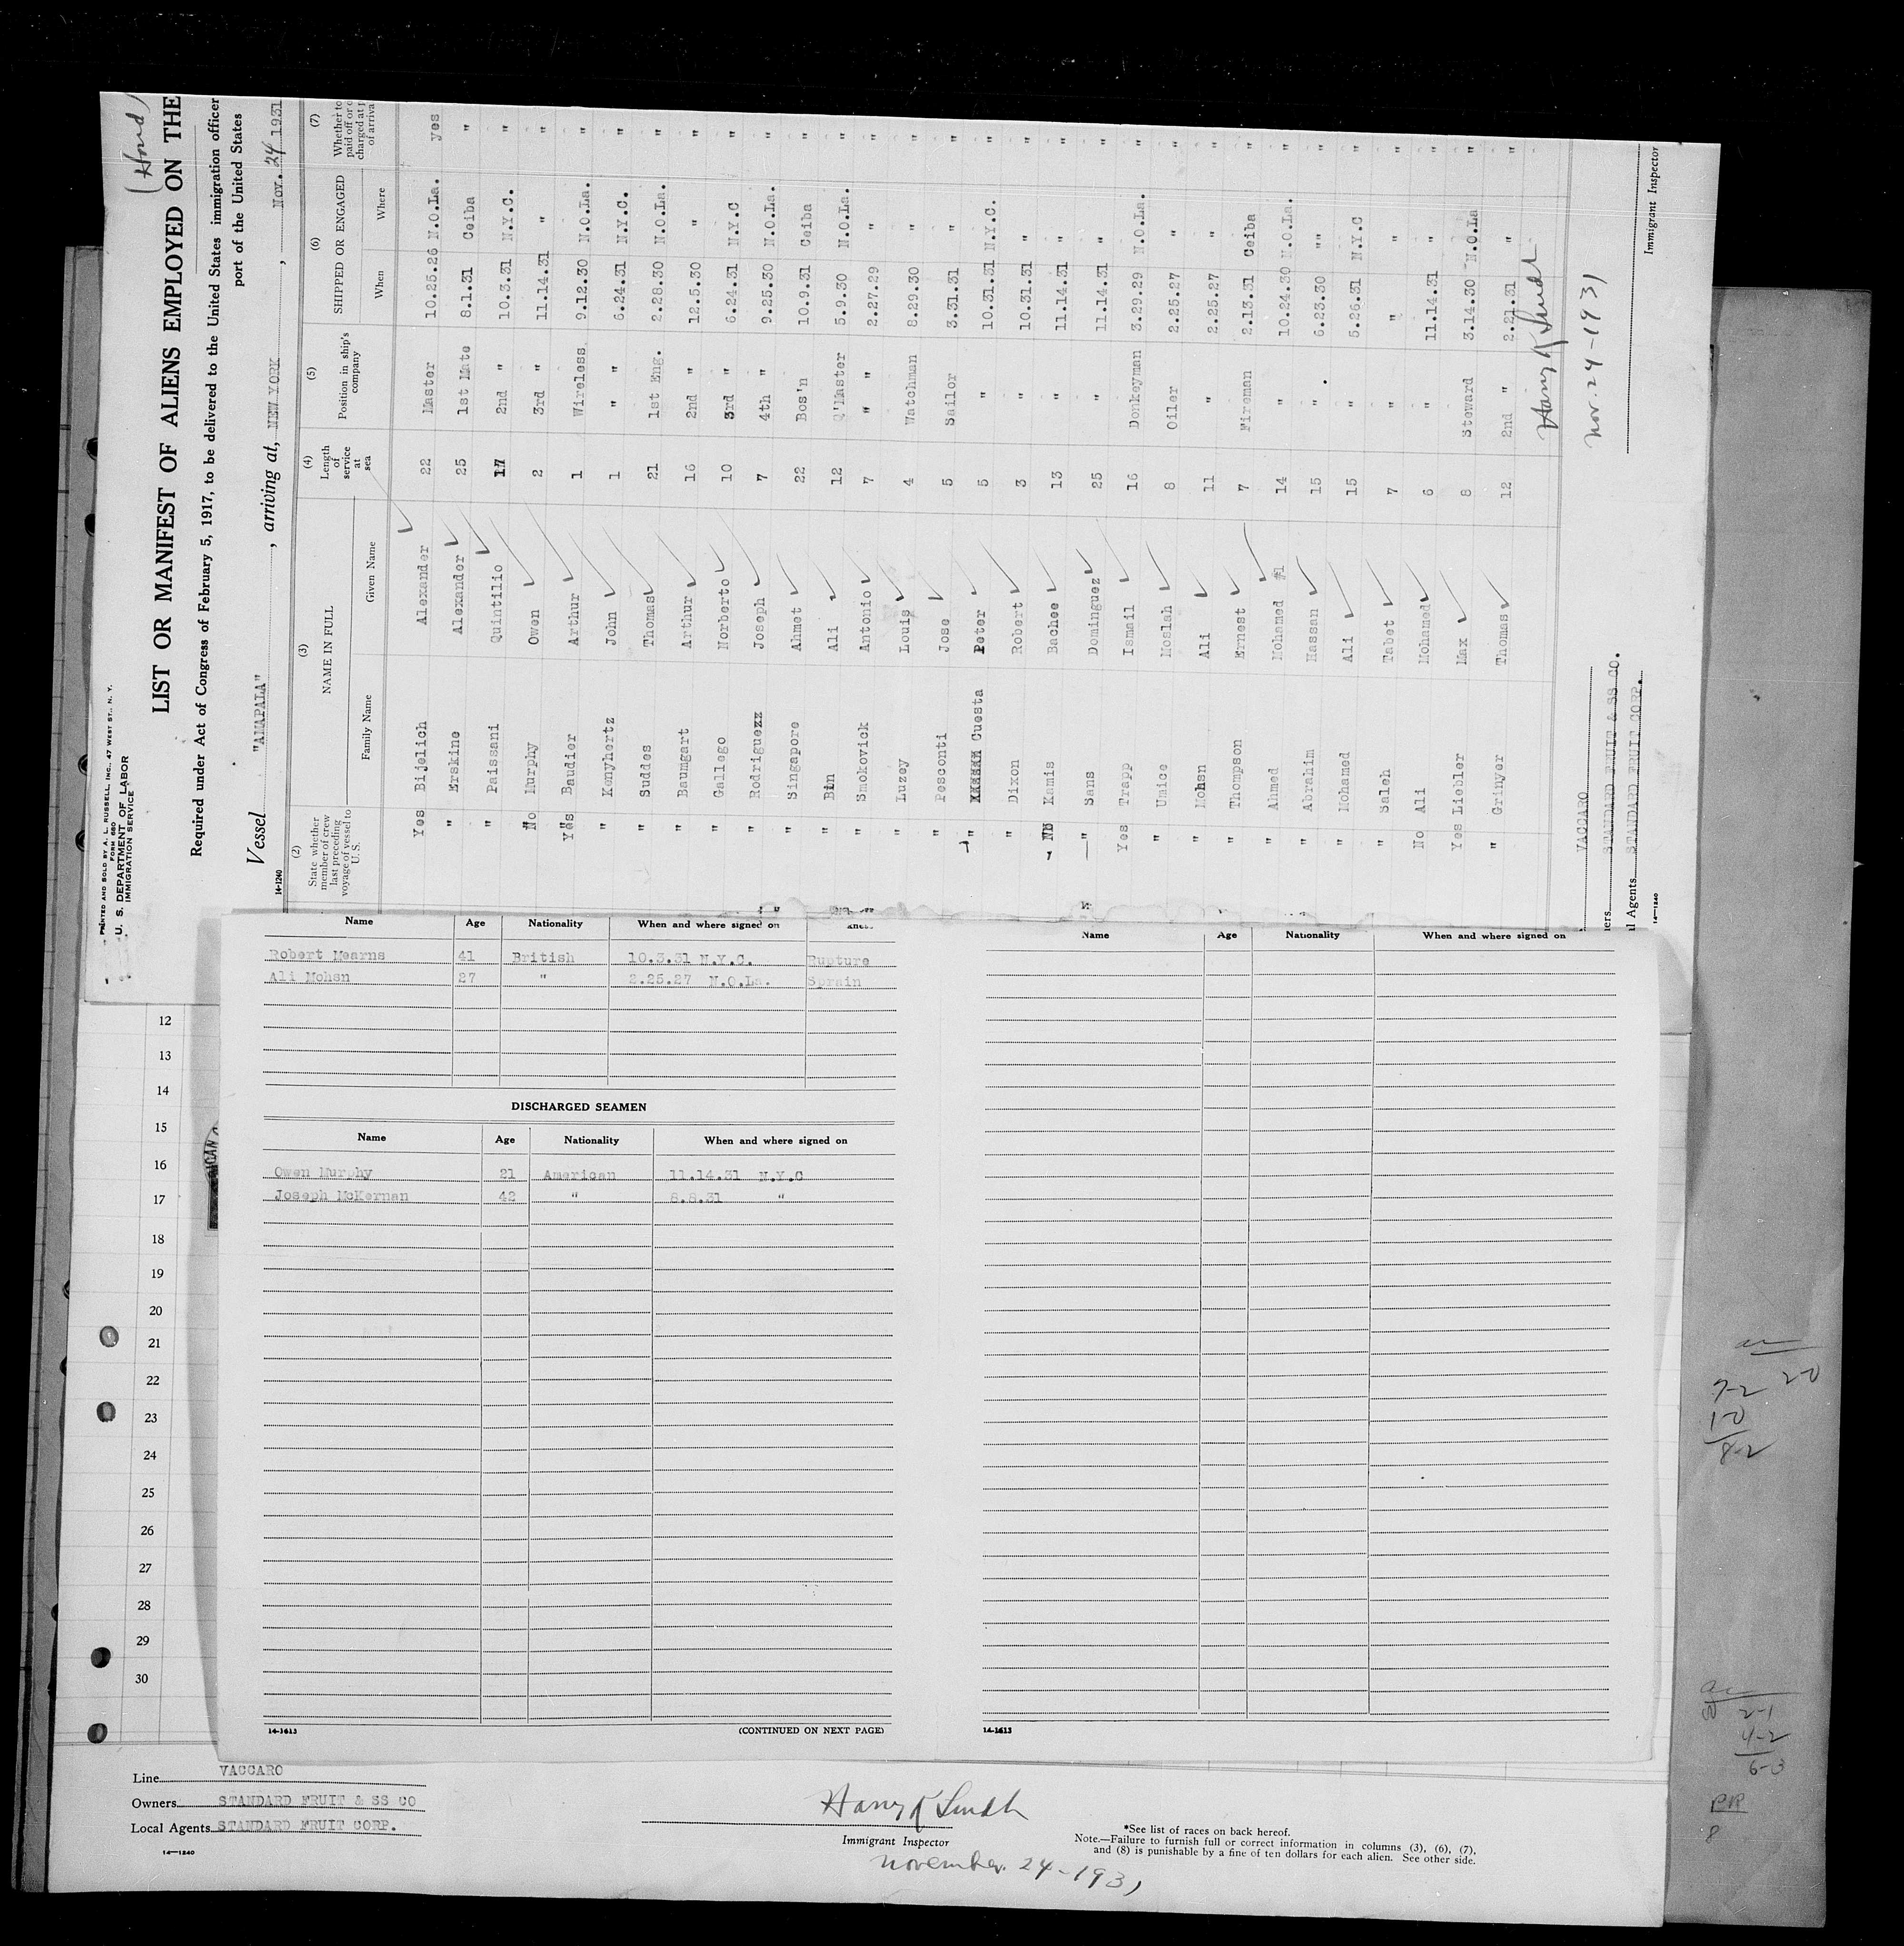 (Hond)
PRINTED AND SOLD BY A. L. RUSSELL, INC., 47 WEST ST., N. Y.
FORM 680
U. S. DEPARTMENT OF LABOR
IMMIGRATION SERVICE
LIST OR MANIFEST OF ALIENS EMPLOYED ON THE
Required under Act of Congress of February 5, 1917, to be delivered to the United States immigration officer
port of the United States
Vessel "AMAPALA", arriving at, NEW YORK, Nov. 24 1931
14-1240
(2) (3) (4) (5) (6) (7)
State whether member of crew last preceding voyage of vessel to U. S.
NAME IN FULL
Family Name Given Name
Length of service at sea
Position in ship's company
SHIPPED OR ENGAGED
When Where
Whether to
paid off or
charged at
of arriva
Yes Bijelich Alexander 22 Master 10.25.26 N.O.La. yes
" Erskine Alexander 25 1st Mate 8.1.31 Ceiba "
" Paissani Quintilio 17 2nd " 10.3.31 N.Y.C. "
No Murphy Owen 2 3rd " 11.14.31 " "
Yes Baudier Arthur 1 Wireless 9.12.30 N.O.La. "
" Konyhertz John 1 " " 6.24.31 N.Y.C. "
" Suddes Thomas 21 1st Eng. 2.28.30 N.O.La. "
" Baumgart Arthur 16 2nd " 12.5.30 " "
" Gallego Norberto 10 3rd " 6.24.31 N.Y.C "
" Rodriguezz Joseph 7 4th " 9.25.30 N.O.La. "
" Singapore Ahmet 22 Bos'n 10.9.31 Ceiba "
" Bin Ali 12 Q'Master 5.9.30 N.O.La. "
" Smokovick Antonio 7 " " 2.27.29 " "
" Luzey Louis 4 Watchman 8.29.30 " "
" Pesconti Jose 5 Sailor 3.31.31 " "
" Cuesta Peter 5 " 10.31.31 N.Y.C. "
" Dixon Robert 3 " 10.31.31 " "
No Kamis Bachee 13 " 11.14.31 " "
" Sans Dominguez 25 " 11.14.31 " "
Yes Trapp Ismail 16 Donkeyman 3.29.29 N.O.La. "
" Umice Moslah 8 Oiler 2.25.27 " "
" Mohsn Ali 11 " 2.25.27 " "
" Thompson Ernest 7 Fireman 2.13.31 Ceiba "
" Ahmed Mohamed #1 14 " 10.24.30 N.O.La. "
" Abrahim Hassan 15 " 6.23.30 "" "
" Mohamed Ali 15 " 5.26.31 N.Y.C "
" Saleh Tabet 7 " " " "
No Ali Mohamed 6 " 11.14.31 " "
Yes Liebler Max 8 Steward 3.14.30 N.O.La "
" Grinyer Thomas 12 2nd " 2.21.31 " "
Nov. 24-1931
VACCARO
ners STANDARD FRUIT & SS CO.
l Agents STANDARD FRUIT CORP.
14—1240
Immigrant Inspector
Name Age Nationality When and where signed on
Robert Mearns 41 British 10.3.31 N.Y.C. Rupture
Ali Mohsn 27 " 2.25.27 N.O.La. Sprain
DISCHARGED SEAMEN
Name Age Nationality When and where signed on
Owen Murphy 21 American 11.14.31 N.Y.C
Joseph McKernan 42 " 8.8.31 "
14-1613 (CONTINUED ON NEXT PAGE)
Name Age Nationality When and where signed on
14-1613
12
13
14
15
16
17
18
19
20
21
22
23
24
25
26
27
28
29
30
7-2 2-0
1-0
8-2
2-1
4-2
6-3
PR
8
Line VACCARO
Owners STANDARD FRUIT & SS CO
Local Agents STANDARD FRUIT CORP.
14—1240
Immigrant Inspector
November 24-1931
*See list of races on back hereof.
Note.—Failure to furnish full or correct information in columns (3), (6), (7),
and (8) is punishable by a fine of ten dollars for each alien. See other side.